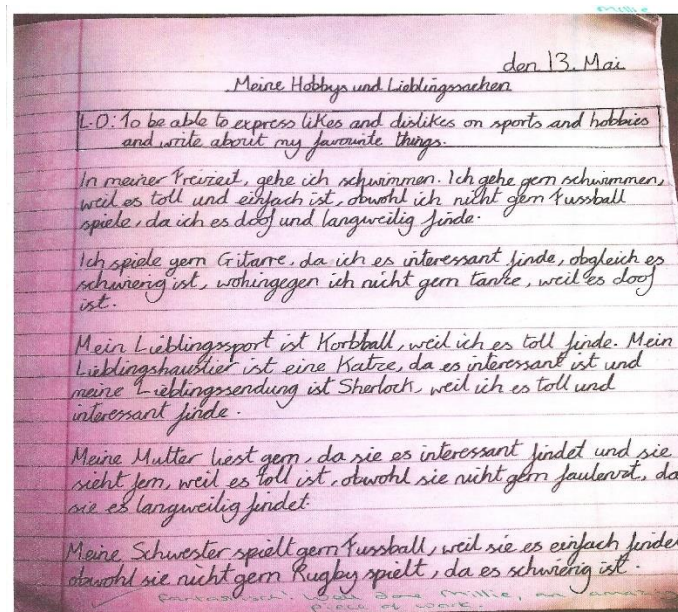 Millie
den 13. Mai
Meine Hobbys und Lieblingssachen
L.O: To be able to express likes and dislikes on sports and hobbies
and write about my favourite things.
In meiner Freizeit, gehe ich schwimmen. Ich gehe gern schwimmen,
weil es toll und einfach ist, obwohl ich nicht gern Fussball
spiele, da ich es doof und langweilig finde.
Ich spiele gern Gitarre, da ich es interessant finde, obgleich es
schwierig ist, wohingegen ich nicht gern tanze, weil es doof
ist.
Mein Lieblingssport ist Korbball, weil ich es toll finde. Mein
Lieblingshaustier ist eine Katze, da es interessant ist und
meine Lieblingssendung ist Sherlock, weil ich es toll und
interessant finde.
Meine Mutter liest gern, da sie es interessant findet und sie
sieht fern, weil es toll ist, obwohl sie nicht gern faulenzt, da
sie es langweilig findet.
Meine Schwester spielt gern Fussball, weil sie es einfach findet
obwohl sie nicht gern Rugby spielt, da es schwierig ist.
Fantastisch! Well done Millie, an amazing
piece of work.